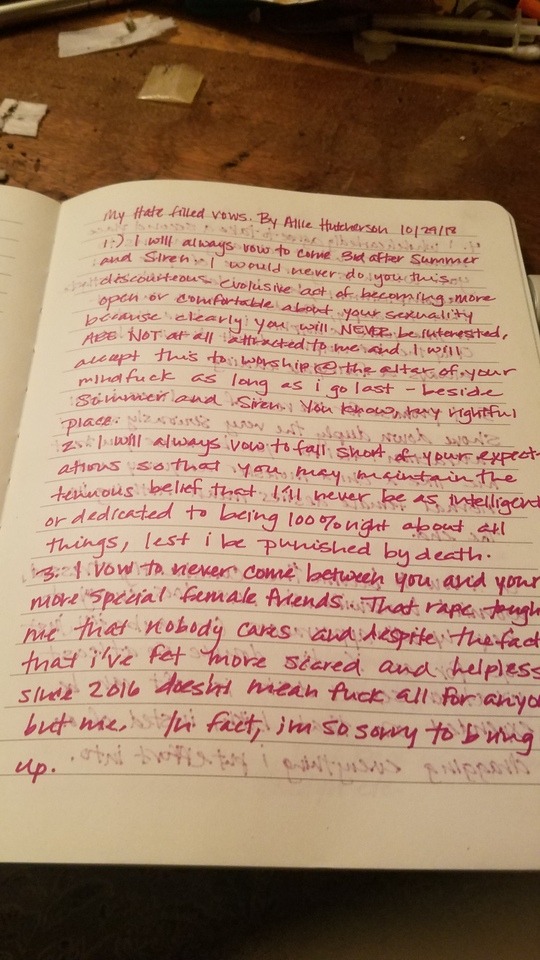 My Hate filled vows. By Allie Hutcherson 10/29/18
1:) I will always vow to come 3rd after Summer
and Siren. I would never do you this
discourteous evolusive act of becoming more
open or comfortable about your sexuality
because clearly you will NEVER be interested,
ARE NOT at all attracted to me and I will
accept this to worship @ the altar of your
mindfuck as long as i go last - beside
Summer and Siren. You know, my rightful
place.
2. I will always vow to fall short of your expect-
ations so that you may maintain the
tenuous belief that I'll never be as intelligent
or dedicated to being 100% right about all
things, lest i be punished by death.
3. I vow to never come between you and your
more special female friends. That rape taugh
me that nobody cares and despite the fact
that i've felt more scared and helpless
since 2016 doesn't mean fuck all for anyo
but me. In fact, im so sorry to bring
up.